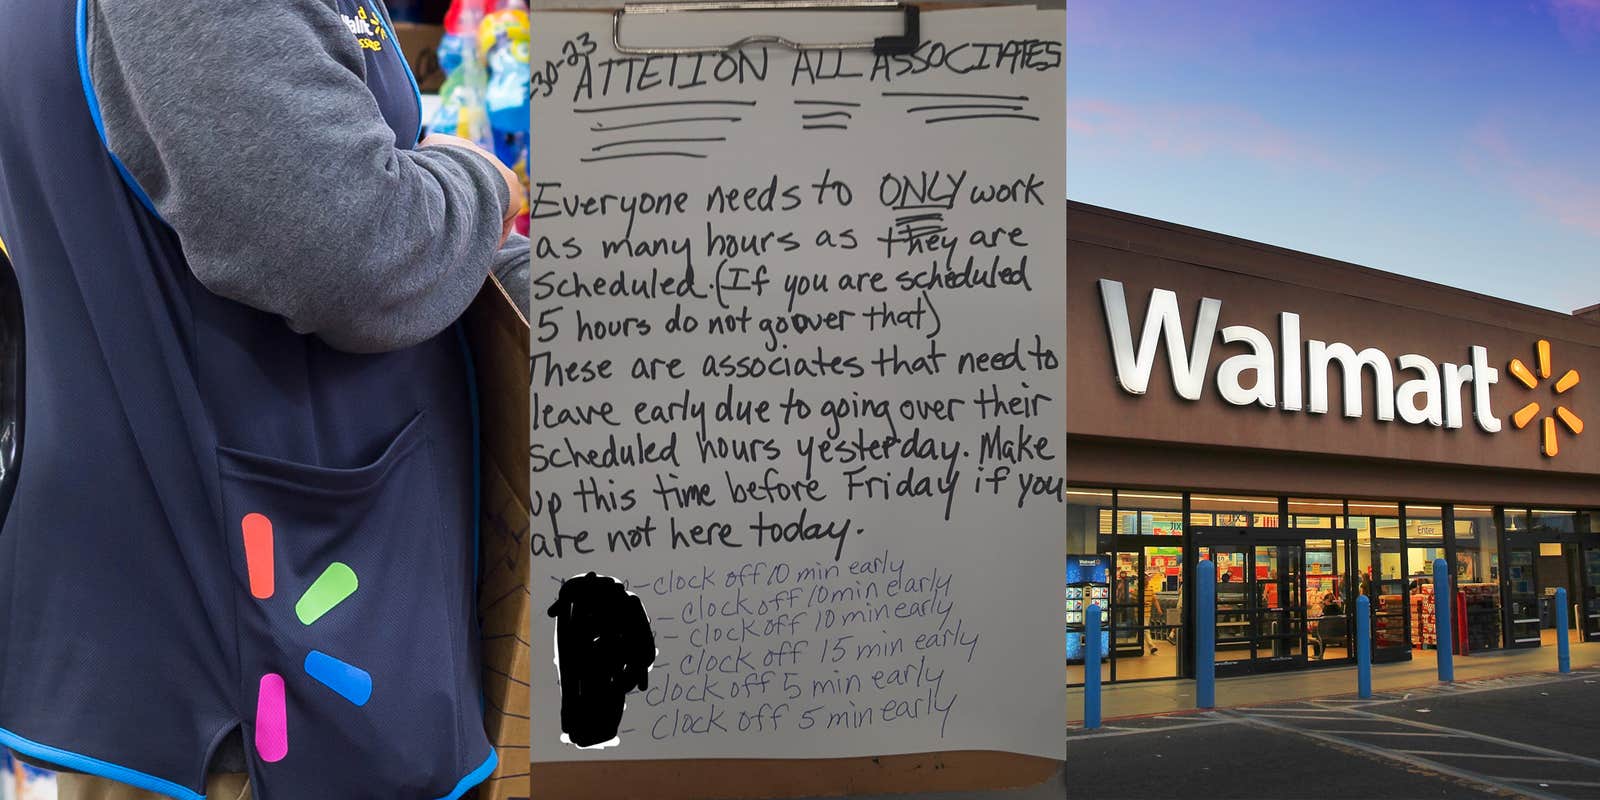 Walm
30-23
ATTETION ALL ASSOCIATES
Everyone needs to ONLY work
as many hours as they are
scheduled. (If you are scheduled
5 hours do not go over that)
These are associates that need to
leave early due to going over their
scheduled hours yesterday. Make
up this time before Friday if you
are not here today.
- clock off 10 min early
- clock off 10 min early
- clock off 10 min early
- clock off 15 min early
clock off 5 min early
- clock off 5 min early
Walmart
Enter
Walmart